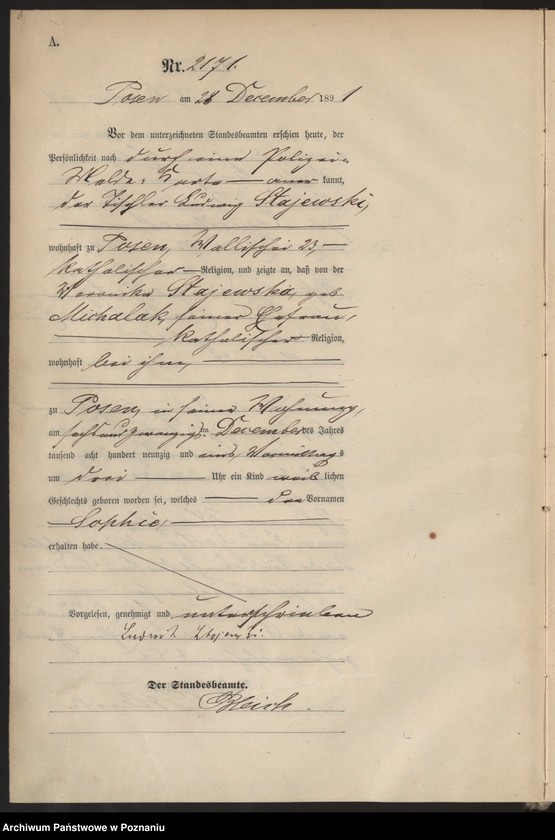 A.
Nr. 2171.
Posen am 28 December 1891
Vor dem unterzeichneten Standesbeamten erschien heute, der
Persönlichkeit nach durch eine Polizei-
Melde-Karte aner kannt,
der Tischler Ludwig Stajewski,
wohnhaft zu Posen, Wallischei 23,
katholischer Religion, und zeigte an, daß von der
Veronika Stajewska, geb.
Michalak, seiner Ehefrau,
katholischer Religion,
wohnhaft bei ihm,
zu Posen, in seiner Wohnung,
am sechsundzwanzigsten December des Jahres
tausend acht hundert neunzig und eins Vormittags
um drei Uhr ein Kind weib lichen
Geschlechts geboren worden sei, welches den Vornamen
Sophie,
erhalten habe.
Vorgelesen, genehmigt und unterschrieben
Ludwik
Der Standesbeamte.
Archiwum Państwowe w Poznaniu